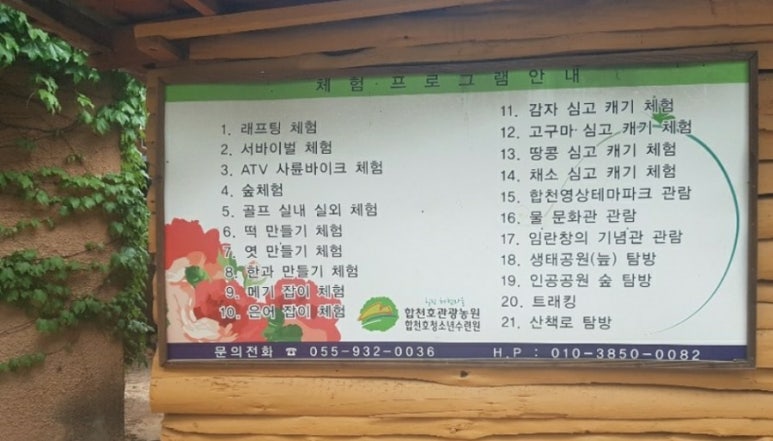 체험·프로그램안내
1. 래프팅 체험
2. 서바이벌 체험
3. ATV 사륜바이크 체험
4. 숲체험
5. 골프 실내 실외 체험
6. 떡 만들기 체험
7. 엿 만들기 체험
8. 한과 만들기 체험
9. 메기 잡이 체험
10. 은어 잡이 체험
11. 감자 심고 캐기 체험
12. 고구마 심고 캐기 체험
13. 땅콩 심고 캐기 체험
14. 채소 심고 캐기 체험
15. 합천영상테마파크 관람
16. 물 문화관 관람
17. 임란창의 기념관 관람
18. 생태공원(늪) 탐방
19. 인공공원 숲 탐방
20. 트래킹
21. 산책로 탐방
합천호관광농원
합천호청소년수련원
문의전화 ☎ 055-932-0036
H.P : 010-3850-0082